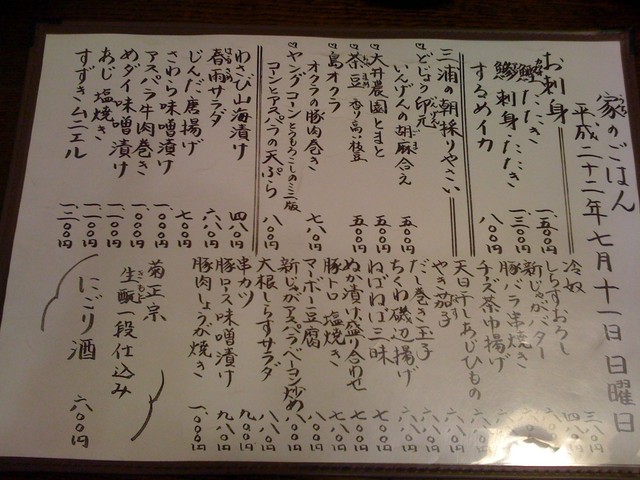 家のごはん
平成二十二年七月十一日 日曜日
お刺身
鰹 たたき 一、五〇〇円
鯵 刺身・たたき 一、三〇〇円
するめイカ 八〇〇円
三浦の朝採りやさい
どじょう印元
いんげんの胡麻合え 五〇〇円
大井農園とまと 五〇〇円
茶豆 香り高い枝豆 五〇〇円
島オクラ
オクラの豚肉巻き 七八〇円
ヤングコーン とうもろこしのミニ版
コーンとアスパラの天ぷら 八〇〇円
わさび山海漬け 四八〇円
春雨サラダ 六八〇円
じんだ唐揚げ 七〇〇円
さわら味噌漬け 一、〇〇〇円
アスパラ牛肉巻き 一、〇〇〇円
めダイ味噌漬け 一、一〇〇円
あじ 塩焼き 一、二〇〇円
すずきムニエル 一、二〇〇円
冷奴 三八〇円
しらすおろし 四八〇円
新じゃがバター
豚バラ串焼き
チーズ茶巾揚げ
天日干しあじひもの
やき茄子
だし巻き玉子
ちくわ磯辺揚げ
ねばねば三昧 七〇〇円
ぬか漬け盛り合わせ 七〇〇円
豚トロ 塩焼き 七八〇円
マーボー豆腐 八〇〇円
新じゃがアスパラベーコン炒め 八〇〇円
大根しらすサラダ 八八〇円
串カツ 九〇〇円
豚ロース味噌漬け 九八〇円
豚肉しょうが焼き 一、〇〇〇円
菊正宗
生酛一段仕込み
にごり酒 六〇〇円